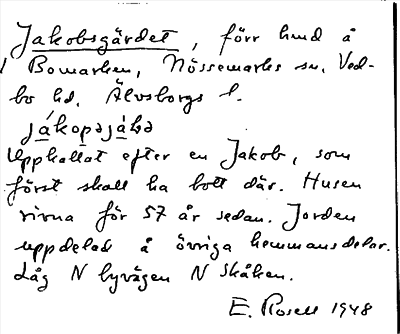 Jakobsgärdet, förr hmd å
Bomarken, Nössemarks sn. Ved-
bo hd. Älvsborgs l.
jákopəjáḷə
Upphallat efter en Jakob, som
först skall ha bott där. Husen
rivna för 57 år sedan. Jorden
uppdelad å övriga hemmansdelar.
Låg N byvägen N Skåken.
E. Rosell 1948